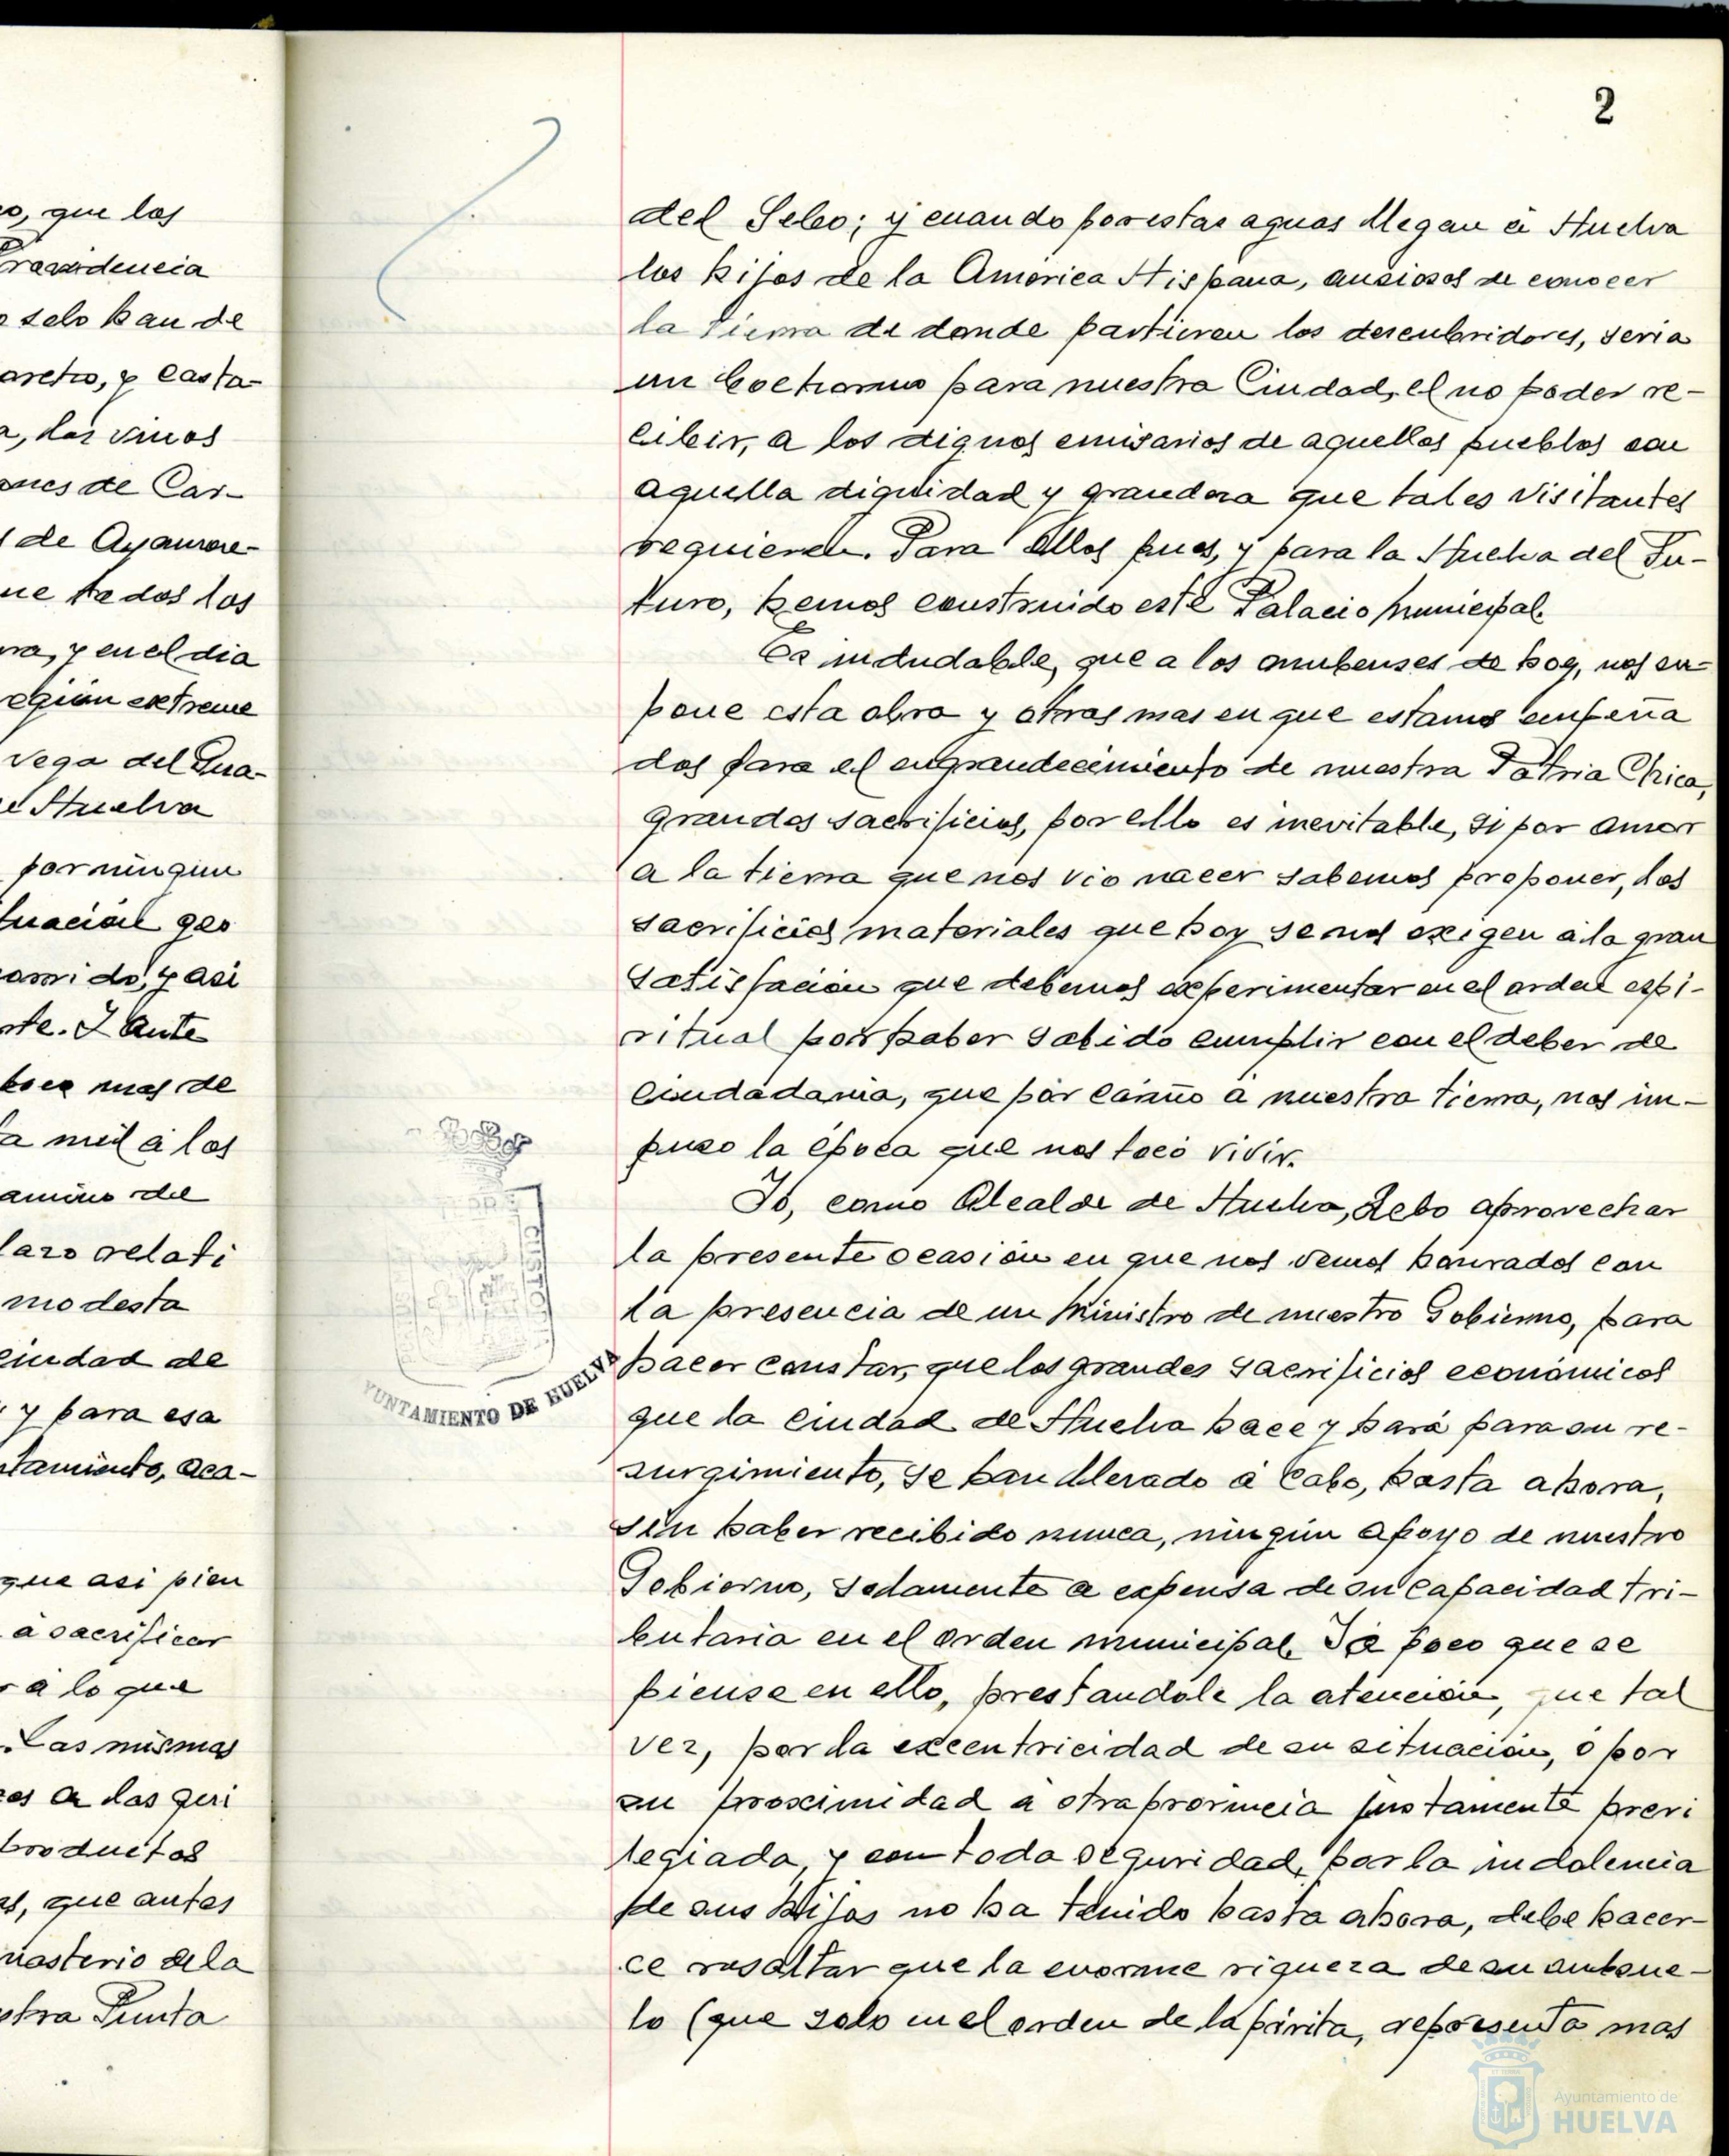 o, que los
Providencia
o selo han de
aretro, y casta-
a, los vinos
ones de Car-
de Ayamon-
ue todos los
ra, y en el dia
egion extreme
vega del Gua-
e Huelva
por ningun
tuacion geo
y asi
te. Y ante
mas de
a mil á los
amino del
lazo relati
modesta
ciudad de
y para esa
tamiento, aca-
que asi pien
á sacrificar
r á lo que
Las mismas
es a las
productos
s, que antes
nasterio de la
stra Punta
2
del Sebo; y cuando por estas aguas llegan á Huelva
los hijos de la América Hispana, ansiosos de conocer
la tierra de donde partieron los descubridores, seria
un bochorno para nuestra Ciudad, el no poder re-
cibir, a los dignos emisarios de aquellos pueblos con
aquella dignidad y grandeza que tales visitantes
requieren. Para ellos pues, y para la Huelva del Fu-
turo, hemos construido este Palacio Municipal.
Es indudable, que a los onubenses de hoy, nos su-
pone esta obra y otras mas en que estamos empeña
dos para el engrandecimiento de nuestra Patria Chica,
grandes sacrificios, por ello es inevitable, si por amor
a la tierra que nos vio nacer sabemos proponer, los
sacrificios materiales que hoy se nos exigen á la gran
satisfacion que debemos experimentar en el orden espi-
ritual por haber sabido cumplir con el deber de
ciudadania, que por cariño a nuestra tierra, nos im-
puso la época que nos tocó vivir.
Yo, como Alcalde de Huelva, debo aprovechar
la presente ocasión en que nos vemos honrados con
la presencia de un Ministro de nuestro Gobierno, para
hacer constar, que los grandes sacrificios económicos
que la ciudad de Huelva hace y hará para su re-
surgimiento, se han llevado á cabo, hasta ahora,
sin haber recibido nunca, ningún apoyo de nuestro
Gobierno, solamente a expensa de su capacidad tri-
butaria en el orden municipal. Y a poco que se
piense en ello, prestandole la atención, que tal
vez, por la excentricidad de su situación, ó por
su proximidad a otra provincia justamente previ
legiada, y con toda seguridad, por la indolencia
de sus hijos no ha tenido hasta ahora, debe hacer-
ce resaltar que la enorme riqueza de su subsue-
lo (que solo en el orden de la pirita, representa mas
YUNTAMIENTO DE HUELVA
Ayuntamiento de
HUELVA